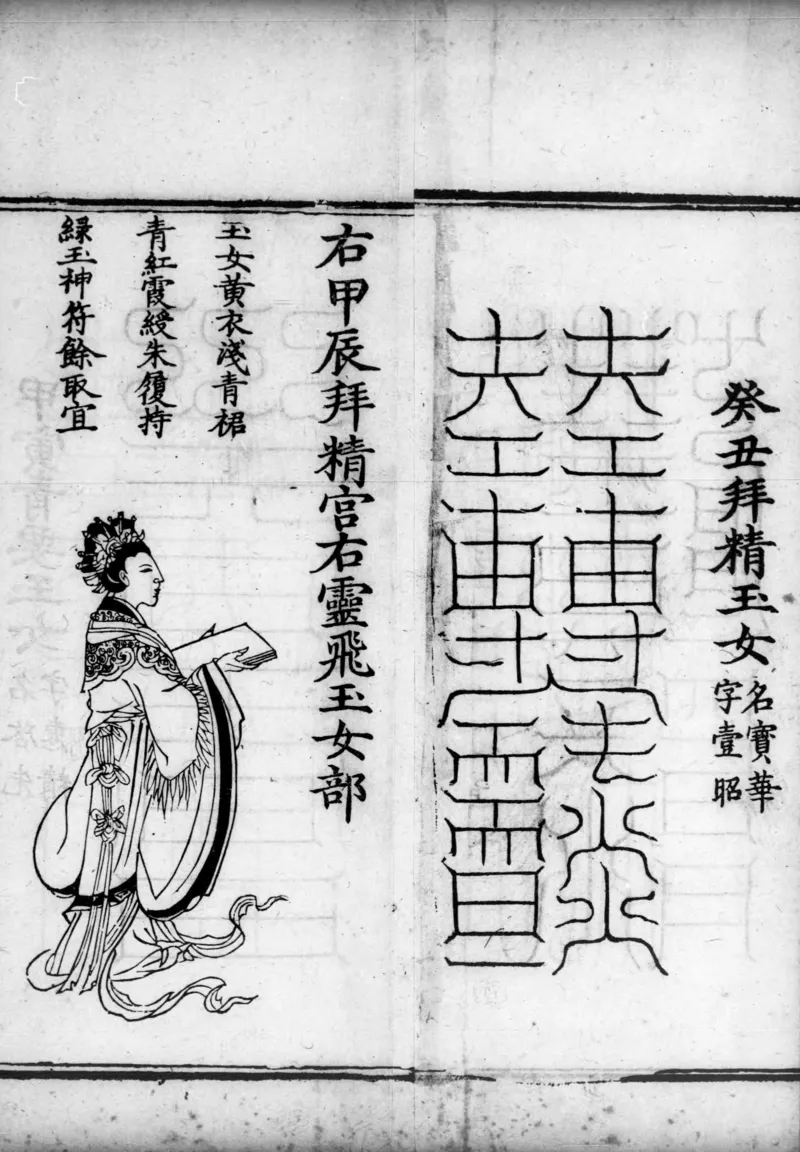 癸丑拜精玉女
名寳華
字壹昭
右甲辰拜精宫右靈飛玉女部
玉女黄衣淺青裙
青紅霞綬朱履持
緑玉神符餘取宜